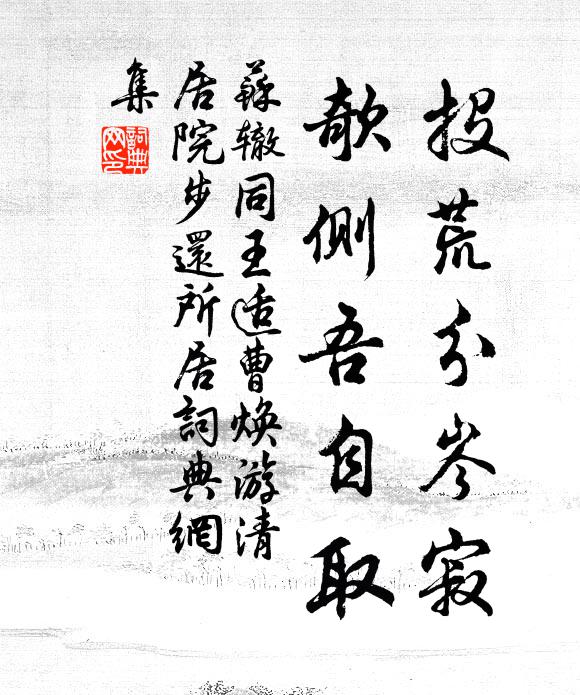 投荒分岑寂
欹側吾自取
蘇轍同王适曹焕游清
居院步還所居詞典網
集
詞典
网印